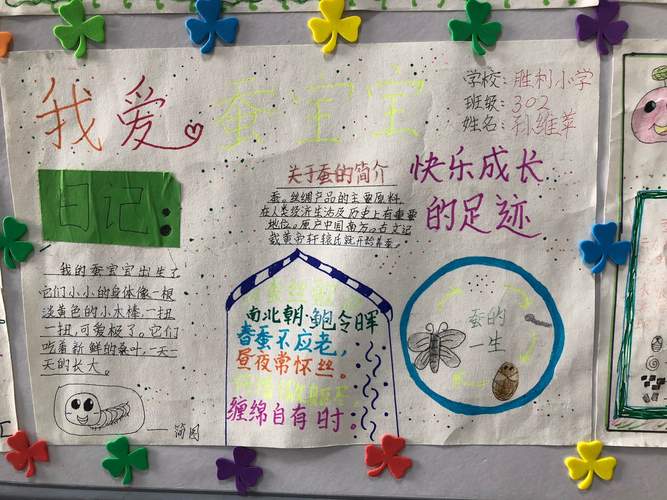 我爱蚕宝宝
学校:胜利小学
班级:302
姓名:孙维苹
日记:
关于蚕的简介
蚕。丝绸产品的主要原料
在人类经济生活及历史上有重要
地位。原产中国南方。古文记
载黄帝轩辕氏就开始养蚕。
快乐成长
的足迹
我的蚕宝宝出生了
它们小小的身体像一根
淡黄色的小木棒,一扭
一扭,可爱极了。它们
吃着新鲜的桑叶,一天一
天的长大。
——简图
南北朝·鲍令晖
春蚕不应老,
昼夜常怀丝。
何惜微躯尽,
缠绵自有时。
蚕的
一生